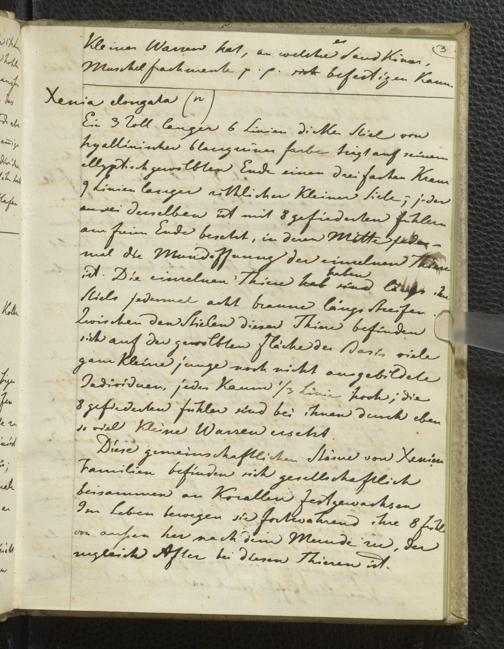 3
kleinen Warzen hat, an welche es Sandkörner,
Muschelfragmente p. p. befestigen kann
Xenia elongata (n)
Ein 3 Zoll langer 6 Linien dicker Stiel von
hyallinischer blaugrüner farbe trägt auf seinem
elliptisch gewölbten Ende einen dreifachen Kranz
9 Linien langer röthlicher kleiner Stiele; jeder
derselben ist mit 8 gefiederten fühlern
am freien Ende besetzt, in deren Mitte jedes-
mal die Mundöffnung der einzelnen Thiere
ist. Die einzelnen Thiere haben längs ihres
Stiels jedesmal acht braune längsstreifen.
Zwischen den Stielen dieser Thiere befinden
sich auf der gewölbten fläche des Basis viele
ganz kleine junge noch nicht ausgebildete
Individuen, jedes kaum 1/3 Linie hoch; die
8 gefiederten fühler sind bei ihnen durch eben
so viel kleine Warzen ersetzt.
Diese gemeinschaftlichen Stämme von Xenien
Familien befinden sich gesellschaftlich
beisammen an Korallen festgewachsen
Im Leben bewegen sie fortwährend ihre 8 fühler
von außen her nach dem Munde zu, der
zugleich After bei diesen Thieren ist.